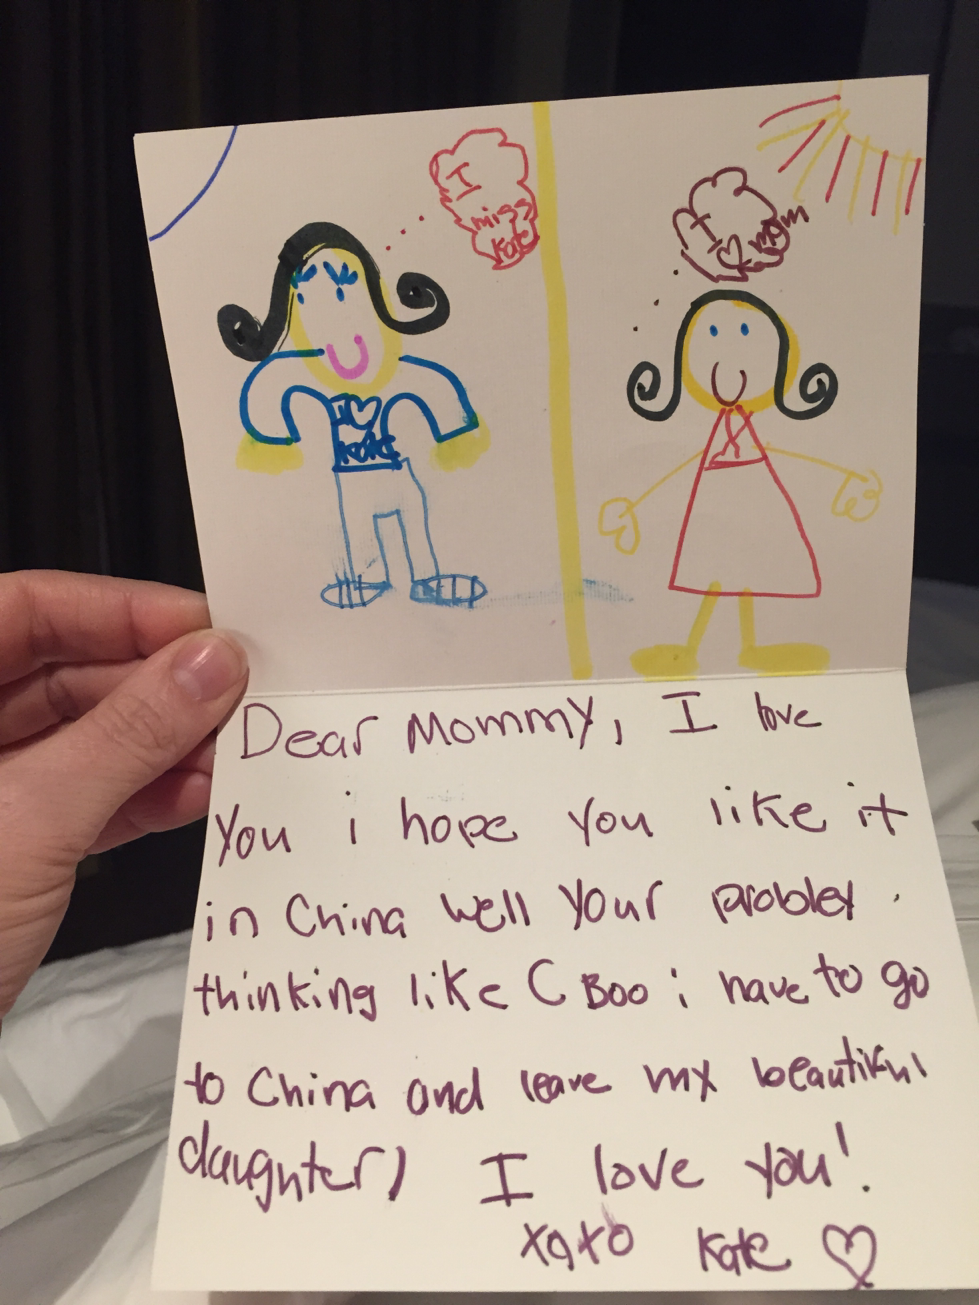 I
miss
Kate
I ♡ mom
I ♡
Kate
Dear Mommy, I love
you i hope you like it
in China well your probley
thinking like ( Boo i have to go
to China and leave my beautiful
daughter) I love you!
xoxo Kate ♡